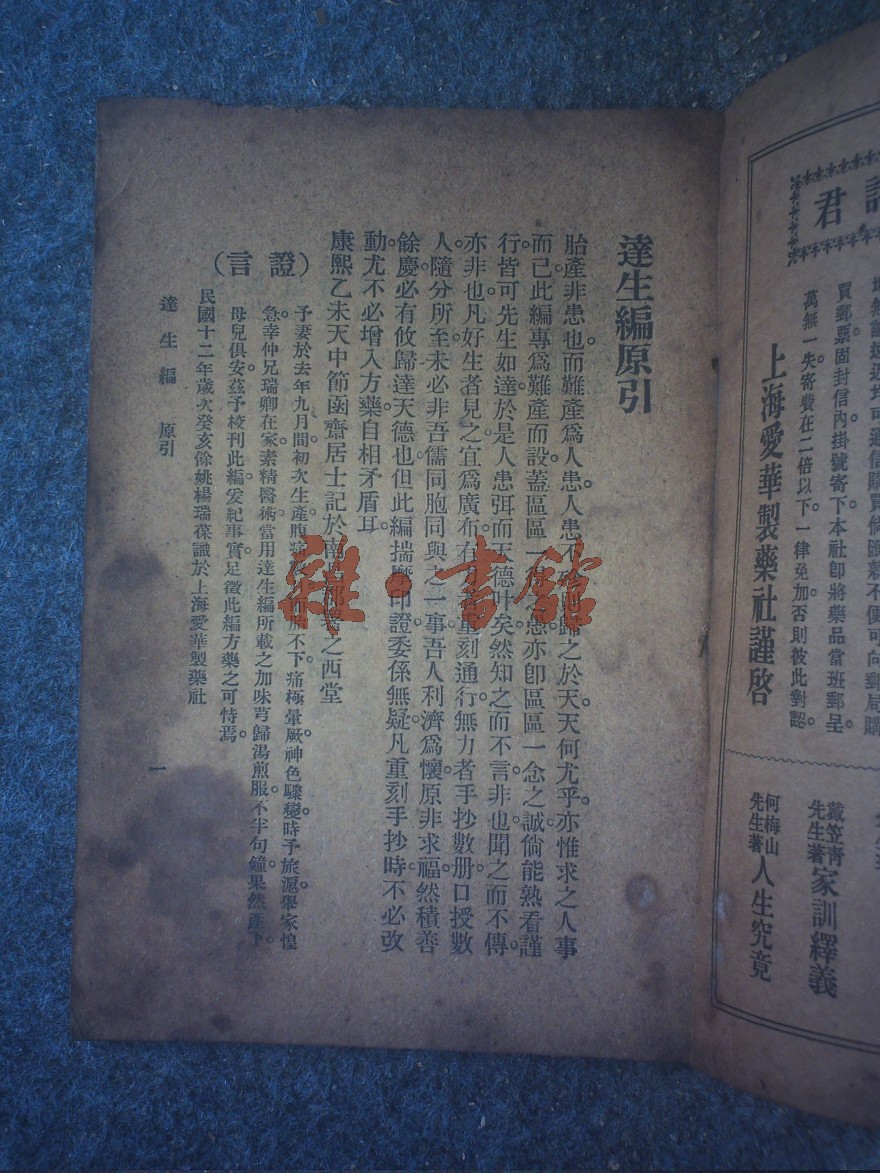 君
買郵票固封信內掛號寄下本社卽將藥品當班郵呈
萬無一失寄費在二倍以下一律免加否則彼此對認
上海愛華製藥社謹啓
戴笠靑先生著家訓繹義
何梅山先生著人生究竟
達生編原引
胎產非患也。而難產爲人患。人患不歸之於天。天何尤乎。亦惟求之人事
而已。此編專爲難產而設。蓋區區一亦卽區區一念之誠。倘能熟看謹
行。皆可先生如達。於是人患弭而天德叶矣。然知之而不言。非也。聞之而不傳。
亦非也。凡好生者見之。宜爲廣布。有重刻通行。無力者手抄數册。口授數
人。隨分所至。未必非吾儒同胞同與之一事。吾人利濟爲懷。原非求福。然積善
餘慶。必有攸歸。達天德也。但此編揣摩印證。委係無疑。凡重刻手抄時。不必改
動。尤不必增入方藥。自相矛盾耳。
康熙乙未天中節函齋居士記於南之西堂
（證言）
予妻於去年九月間初次生產腹不下。痛極暈厥。神色驟變。時予旅滬。舉家惶
急。幸仲兄瑞卿在家。素精醫術。當用達生編所載之加味芎歸湯煎服。不半句鐘。果然產下。
母兒俱安。茲予校刊此編。爰紀事實。足徵此編方藥之可恃焉。
民國十二年歲次癸亥餘姚楊瑞葆識於上海愛華製藥社
達生編 原引 一
雜·書館